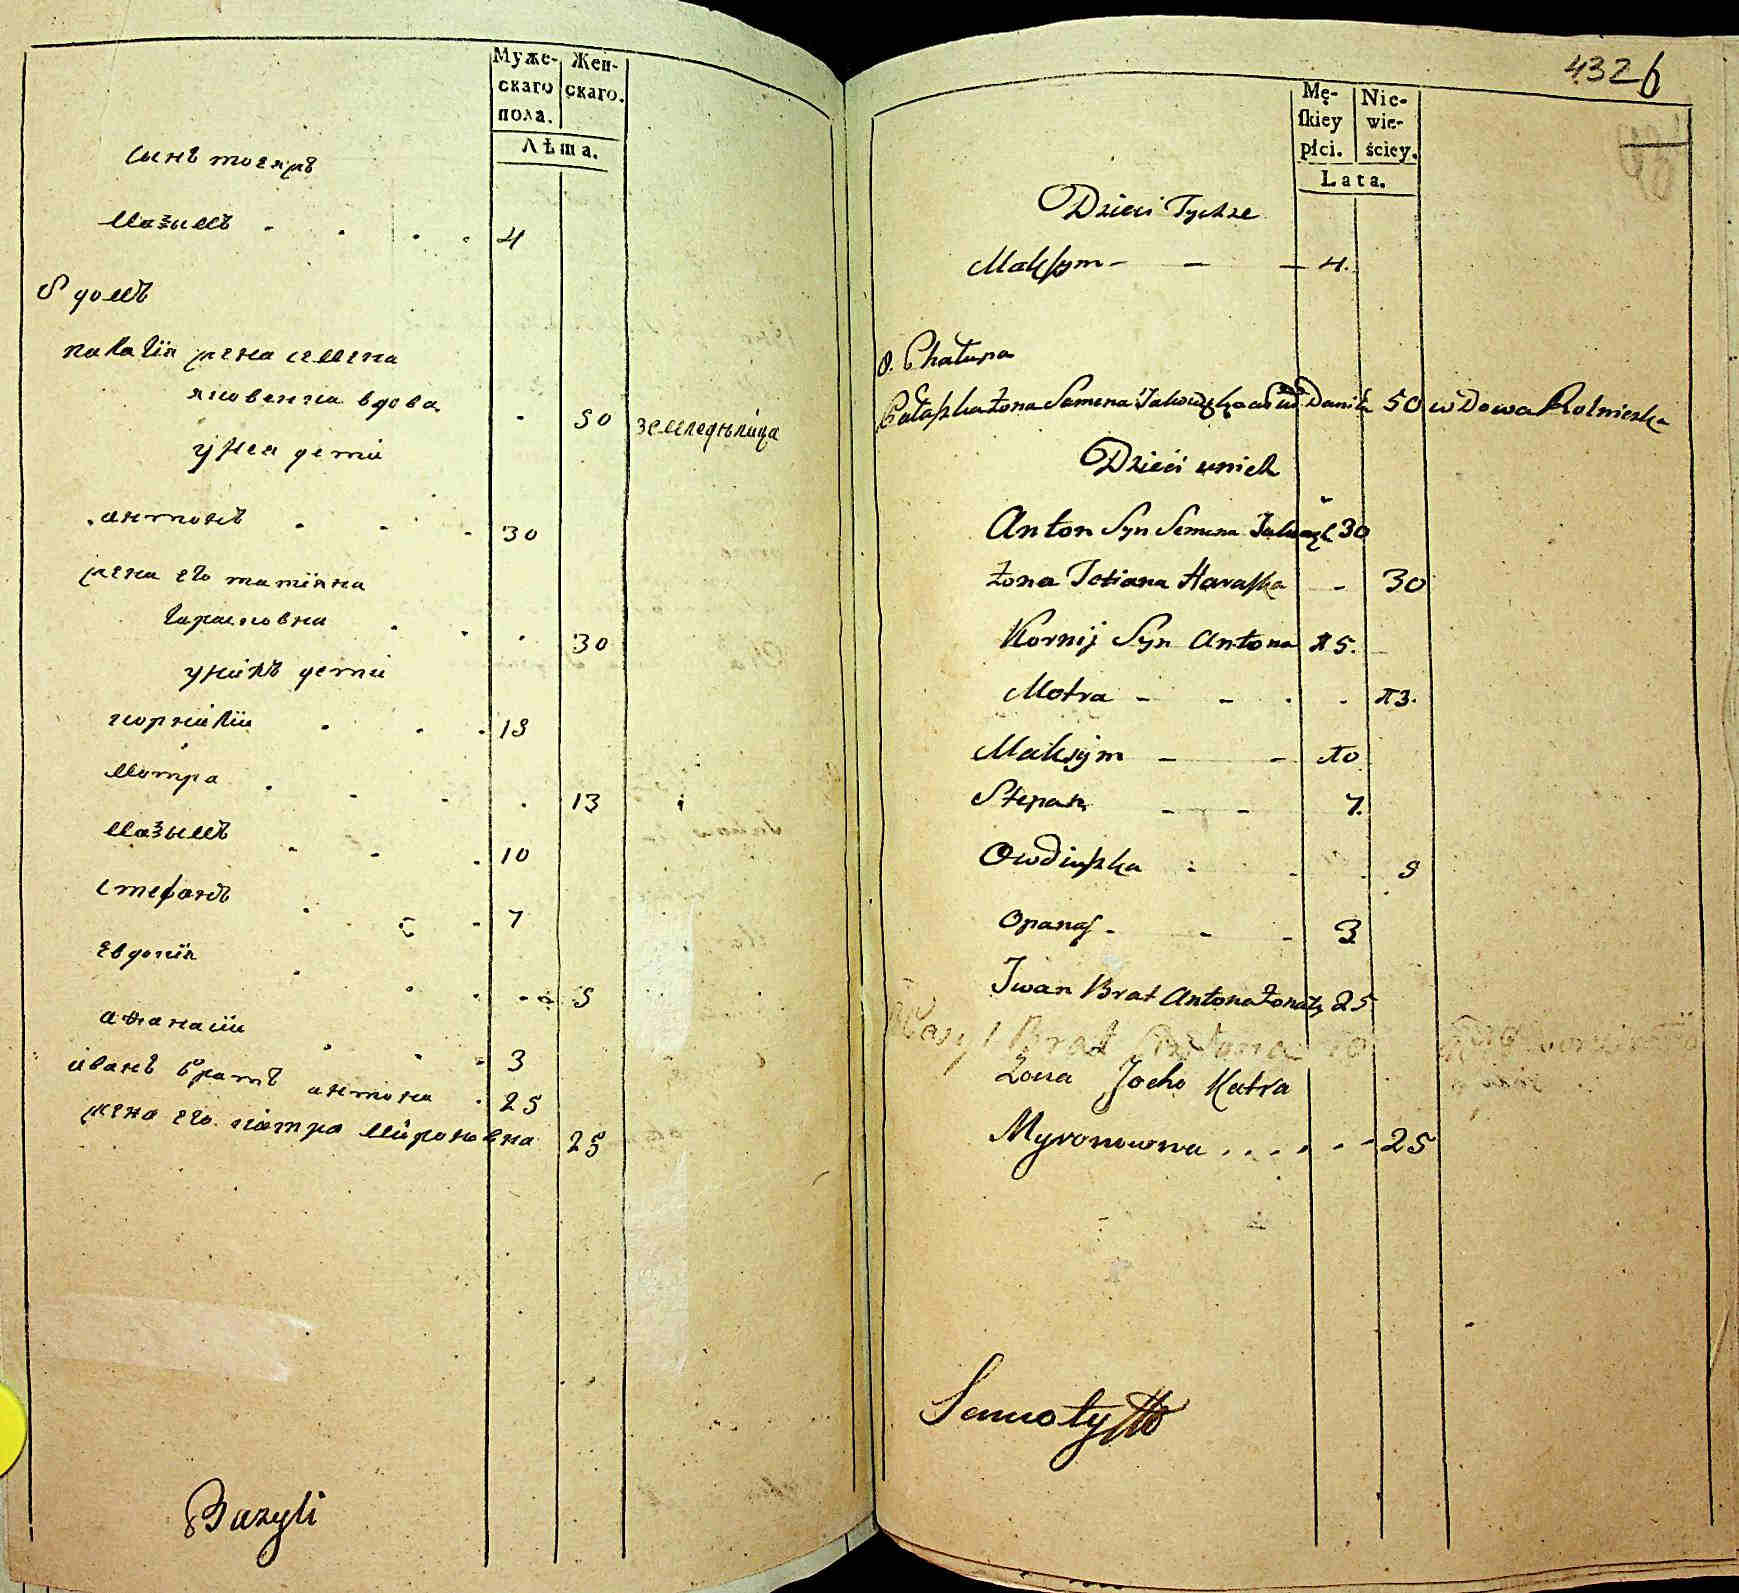 Муже-
скаго
пола.
Жен-
скаго.
Лѣта.
сынъ тоежъ
Мазымъ 4
8 домъ
палагія жена семена
яковенка вдова 50 земледѣлица
у нея дети
антонъ 30
жена его татіяна
гарасковна 30
у нихъ дети
корнилій 15
Мотра 13
Мазымъ 10
стефанъ 7
Евдокія 5
афанасій 3
иванъ братъ антона 25
жена его катра мироновна 25
Bazyli
432 6
Mę-
skiey
płci.
Nie-
wie-
ściey.
Lata.
Dzieci Tychże
Maksym 4.
8. Chałupa
Pałaszka żona Semena 50 wdowa Rolniczka
Dzieci u nich
Anton Syn Semena 30
żona Tetiana Haraska 30
Kornij Syn Antona 15.
Motra 13.
Maksym 10
Stepan 7.
Owdiuszka 5
Opanas 3
Iwan Brat Antona żonaty 25
Wasyl Brat Antona 10
żona Jocho Katra
Myronowna 25